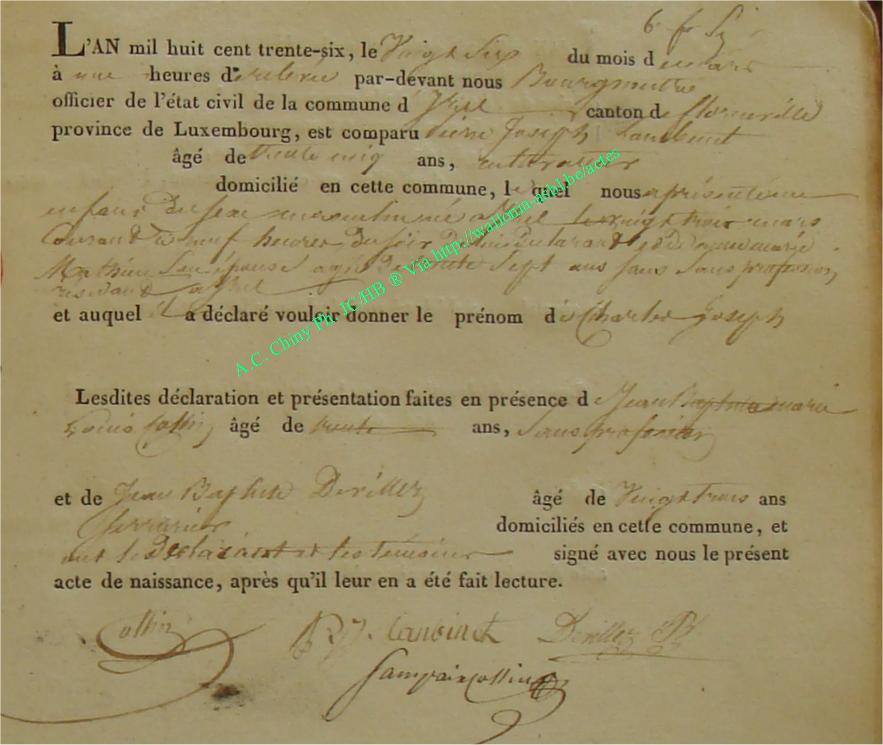 L'AN mil huit cent trente-six, le Vingt Six du mois de mars
à une heures de relevée par-devant nous Bourgmestre
officier de l'état civil de la commune d canton de florenville
province de Luxembourg, est comparu pierre Joseph Lambinet
âgé de trente cinq ans, cultivateur
domicilié en cette commune, lequel nous a présenté un
enfant du sexe masculin né a le vingt trois mars
Courant à neuf heures du soir de lui Declarant & de marie
Mathieu Son épouse agée de trente Sept ans Sans profession,
résidant a
et auquel il a déclaré vouloir donner le prénom de Charles Joseph
Lesdites déclaration et présentation faites en présence de Jean Baptiste marie
Louis Collin âgé de trente ans, Sans profession
et de Jean Baptiste Derillez âgé de Vingt trois ans
Serrurier domiciliés en cette commune, et
ont le Declarant et les témoins signé avec nous le présent
acte de naissance, après qu'il leur en a été fait lecture.
Collin P. J. Lambinet Derillez JB
A.C. Chiny Ph. IC/HB ® Via http://wallonia-asbl.be/actes